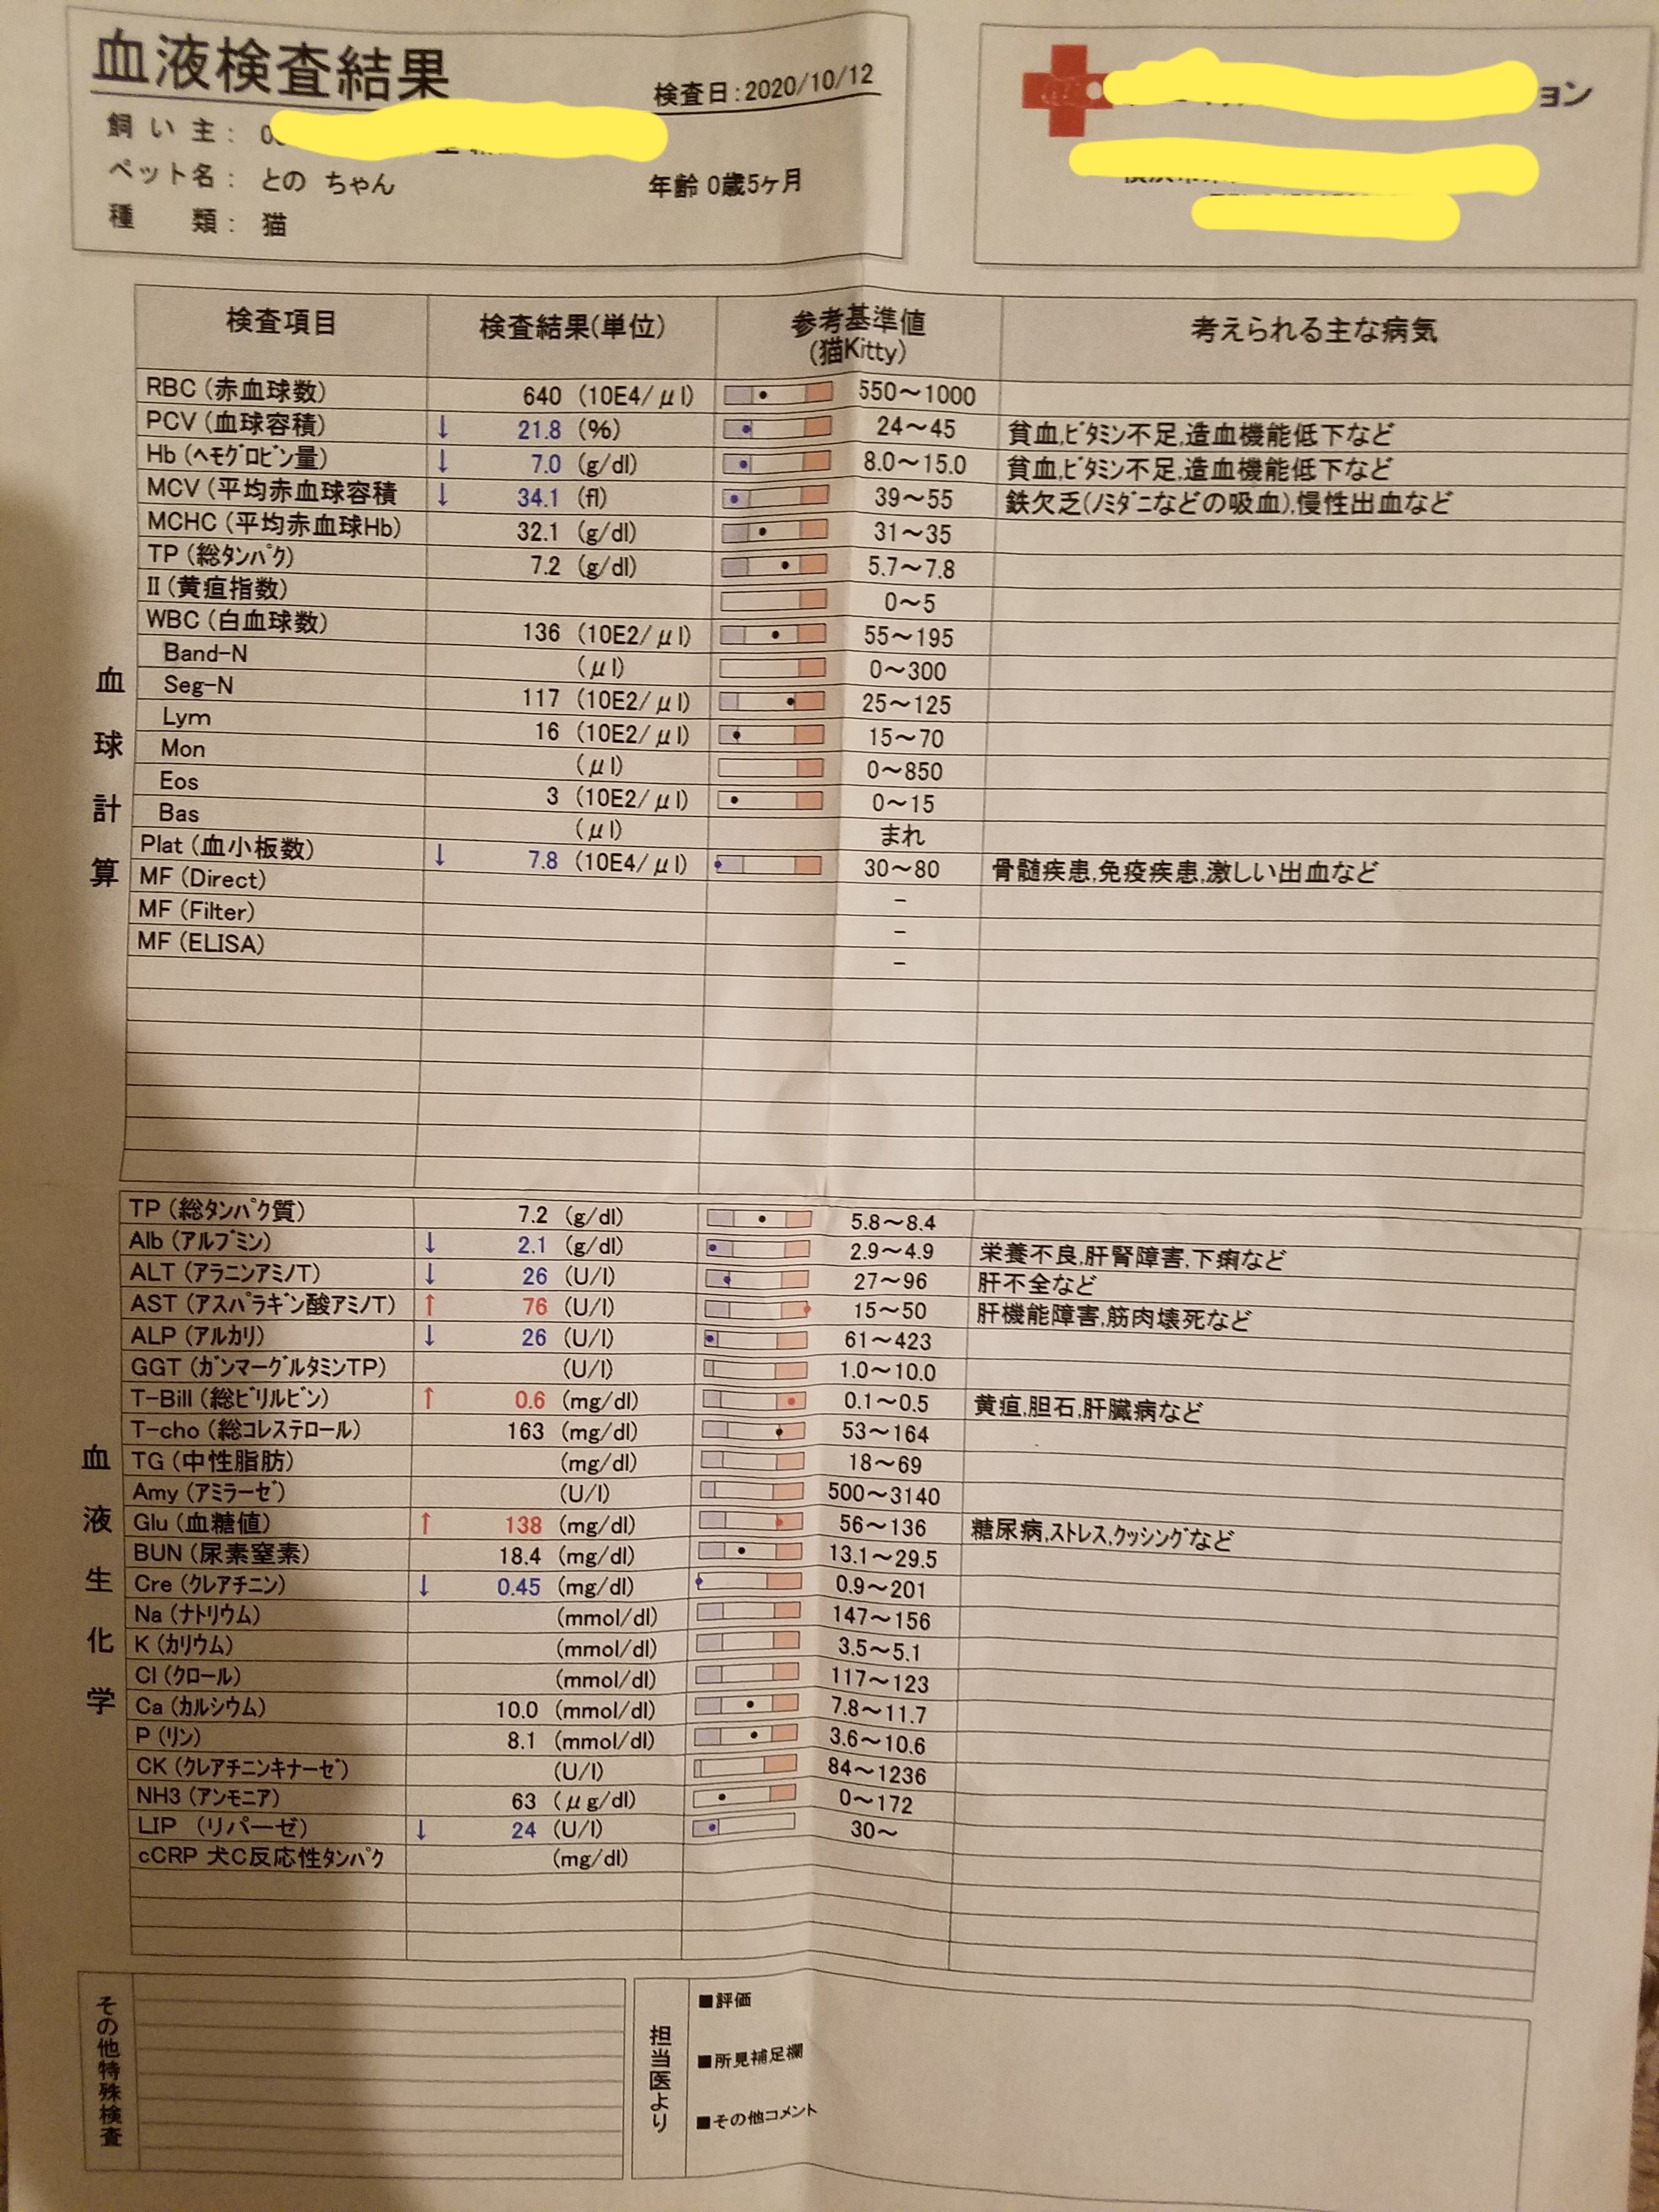 血液検査結果
検査日:2020/10/12
飼い主:
ペット名: とのちゃん 年齢 0歳5ヶ月
種類: 猫
ョン
検査項目 検査結果(単位) 参考基準値(猫Kitty) 考えられる主な病気
血球計算
RBC(赤血球数) 640 (10E4/μl) 550～1000
PCV(血球容積) ↓ 21.8 (%) 24～45 貧血,ﾋﾞﾀﾐﾝ不足,造血機能低下など
Hb(ﾍﾓｸﾞﾛﾋﾞﾝ量) ↓ 7.0 (g/dl) 8.0～15.0 貧血,ﾋﾞﾀﾐﾝ不足,造血機能低下など
MCV(平均赤血球容積 ↓ 34.1 (fl) 39～55 鉄欠乏(ﾉﾐﾀﾞﾆなどの吸血),慢性出血など
MCHC(平均赤血球Hb) 32.1 (g/dl) 31～35
TP(総ﾀﾝﾊﾟｸ) 7.2 (g/dl) 5.7～7.8
II(黄疸指数) 0～5
WBC(白血球数) 136 (10E2/μl) 55～195
Band-N (μl) 0～300
Seg-N 117 (10E2/μl) 25～125
Lym 16 (10E2/μl) 15～70
Mon (μl) 0～850
Eos 3 (10E2/μl) 0～15
Bas (μl) まれ
Plat(血小板数) ↓ 7.8 (10E4/μl) 30～80 骨髄疾患,免疫疾患,激しい出血など
MF(Direct) -
MF(Filter) -
MF(ELISA) -
血液生化学
TP(総ﾀﾝﾊﾟｸ質) 7.2 (g/dl) 5.8～8.4
Alb(ｱﾙﾌﾞﾐﾝ) ↓ 2.1 (g/dl) 2.9～4.9 栄養不良,肝腎障害,下痢など
ALT(ｱﾗﾆﾝｱﾐﾉT) ↓ 26 (U/l) 27～96 肝不全など
AST(ｱｽﾊﾟﾗｷﾞﾝ酸ｱﾐﾉT) ↑ 76 (U/l) 15～50 肝機能障害,筋肉壊死など
ALP(ｱﾙｶﾘ) ↓ 26 (U/l) 61～423
GGT(ｶﾞﾝﾏｰｸﾞﾙﾀﾐﾝTP) (U/l) 1.0～10.0
T-Bill(総ﾋﾞﾘﾙﾋﾞﾝ) ↑ 0.6 (mg/dl) 0.1～0.5 黄疸,胆石,肝臓病など
T-cho(総ｺﾚｽﾃﾛｰﾙ) 163 (mg/dl) 53～164
TG(中性脂肪) (mg/dl) 18～69
Amy(ｱﾐﾗｰｾﾞ) (U/l) 500～3140
Glu(血糖値) ↑ 138 (mg/dl) 56～136 糖尿病,ｽﾄﾚｽ,ｸｯｼﾝｸﾞなど
BUN(尿素窒素) 18.4 (mg/dl) 13.1～29.5
Cre(ｸﾚｱﾁﾆﾝ) ↓ 0.45 (mg/dl) 0.9～201
Na(ﾅﾄﾘｳﾑ) (mmol/dl) 147～156
K(ｶﾘｳﾑ) (mmol/dl) 3.5～5.1
Cl(ｸﾛｰﾙ) (mmol/dl) 117～123
Ca(ｶﾙｼｳﾑ) 10.0 (mmol/dl) 7.8～11.7
P(ﾘﾝ) 8.1 (mmol/dl) 3.6～10.6
CK(ｸﾚｱﾁﾆﾝｷﾅｰｾﾞ) (U/l) 84～1236
NH3(ｱﾝﾓﾆｱ) 63 (μg/dl) 0～172
LIP (リパーゼ) ↓ 24 (U/l) 30～
cCRP 犬C反応性ﾀﾝﾊﾟｸ (mg/dl)
その他特殊検査
担当医より
■評価
■所見補足欄
■その他コメント